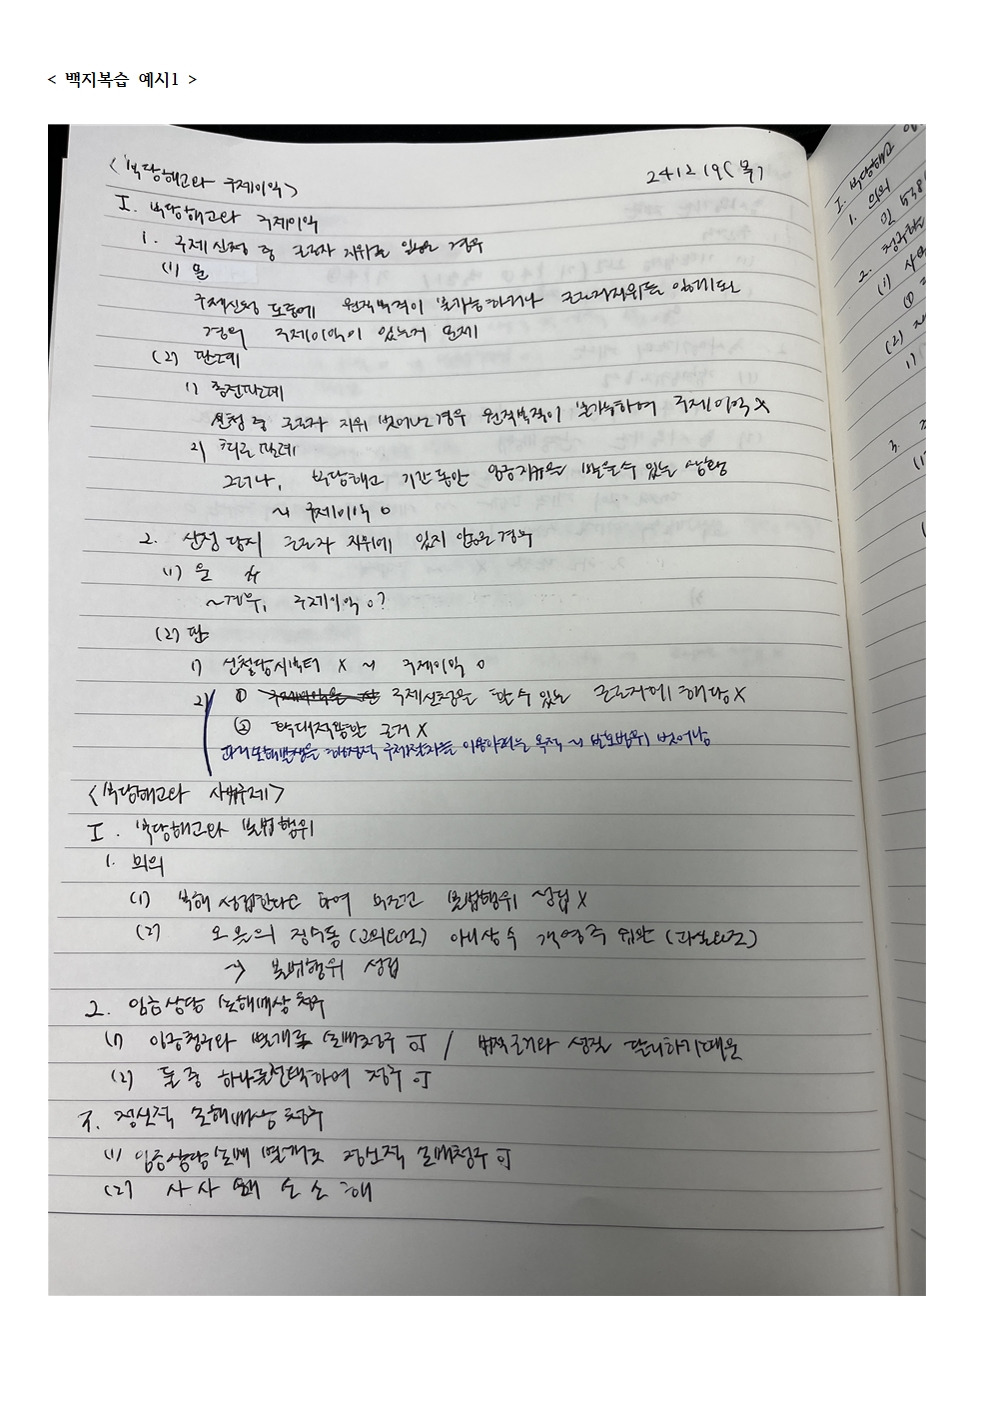 < 백지복습 예시1 >
<부당해고와 구제이익> 241219(목)
I. 부당해고와 구제이익
1. 구제신청 중 근로자 지위를 잃은 경우
(1) 문
구제신청 도중에 원직복직이 불가능하거나 근로자지위를 잃게 된
경우 구제이익이 있는지 문제
(2) 판례
1) 종전판례
신청 중 근로자 지위 벗어난 경우 원직복직이 불가능하여 구제이익 X
2) 최근판례
그러나, 부당해고 기간 동안 임금지급을 받을 수 있는 상황
~ 구제이익 O
2. 신청 당시 근로자 지위에 있지 않은 경우
(1) 문
~경우, 구제이익 O?
(2) 판
1) 신청당시부터 X ~ 구제이익 O
2) ① 구제신청을 할 수 있는 근로자에 해당 X
② 확대적용할 근거 X
구제절차를 이용하려는 목적 ~ 보호범위 벗어남
<부당해고와 사법구제>
I. 부당해고와 불법행위
1. 의의
(1) 부해 성립한다고 하여 무조건 불법행위 성립 X
(2) 오을의 징수통 (고의요건) 아니상수 객영주 위완 (과실요건)
→ 불법행위 성립
2. 임금상당 손해배상 청구
(1) 임금청구와 별개로 손배청구 可 / 법적근거와 성질 달리하기때문
(2) 둘 중 하나를 선택하여 청구 可
3. 정신적 손해배상 청구
(1) 임금상당 손배 별개로 정신적 손배청구 可
(2) 사 사 손 소 해